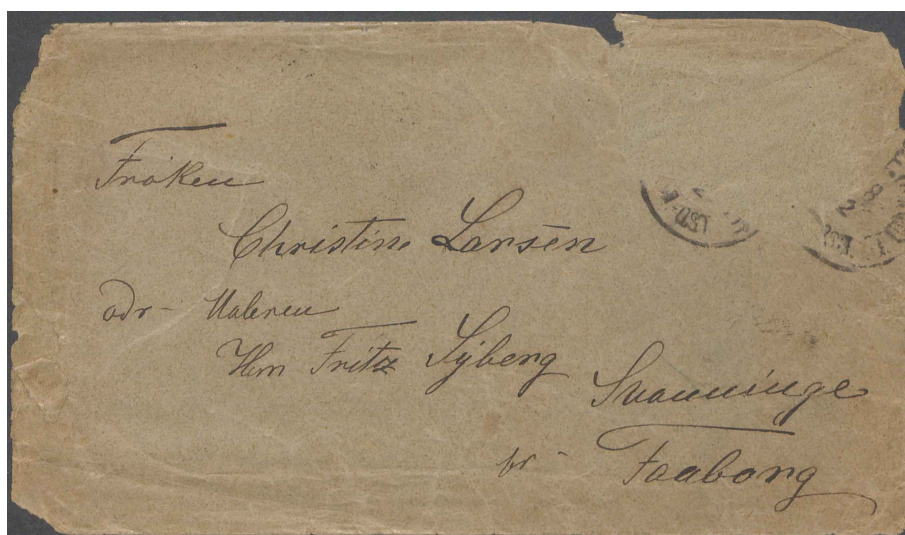 Frøken
Christine Larsen
adr- Maleren
Herr Fritz Syberg
Svanninge
pr- Faaborg